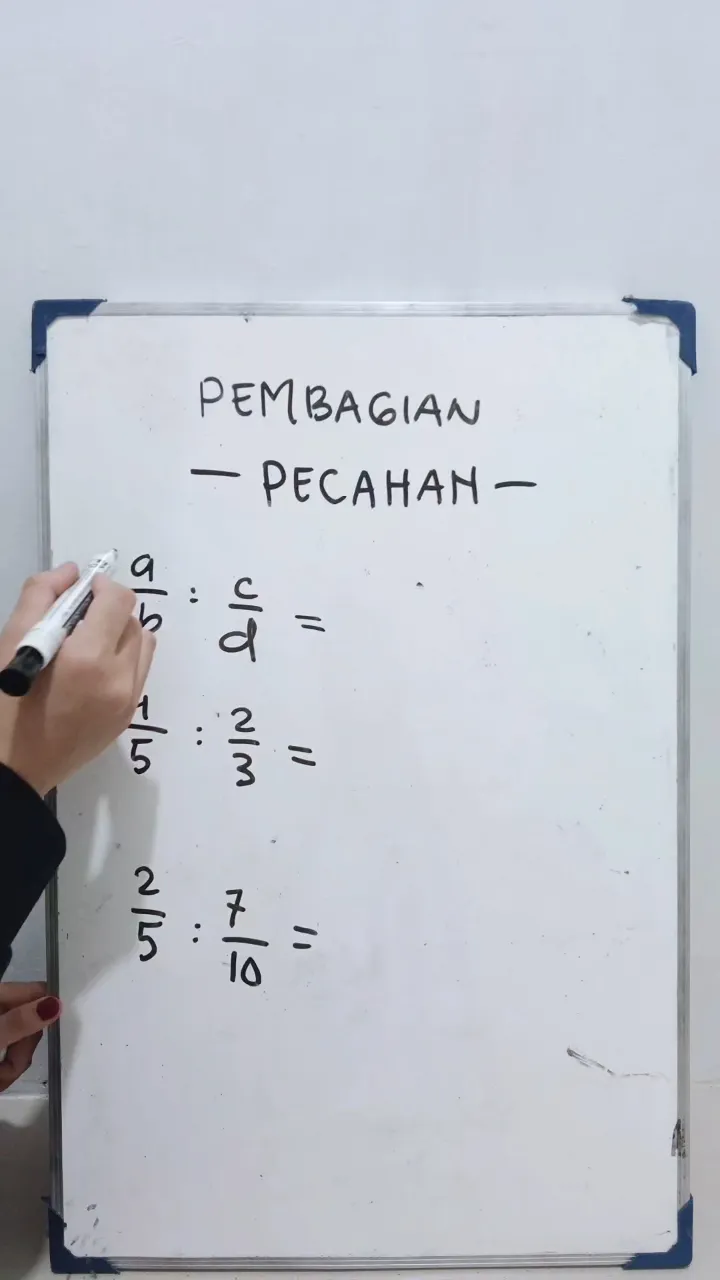 PEMBAGIAN
— PECAHAN —
a/b : c/d =
/5 : 2/3 =
2/5 : 7/10 =